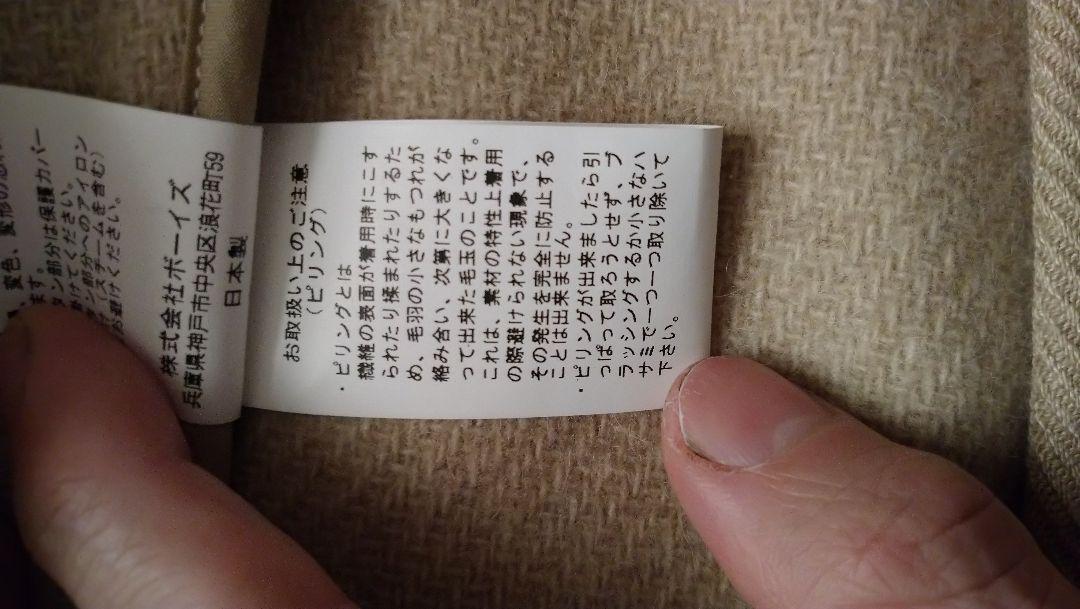 変色、変形の恐れ
ます。
タン部分は保護カバー
掛けてください。
ン部分へのアイロン
(スチームを含む)
お避けください。
株式会社ボーイズ
兵庫県神戸市中央区浪花町59
日本製
お取扱い上のご注意
(ピリング)
・ピリングとは
繊維の表面が着用時にこす
られたり揉まれたりするた
め、毛羽の小さなもつれが
絡み合い、次第に大きくな
って出来た毛玉のことです。
これは、素材の特性上着用
の際避けられない現象で、
その発生を完全に防止する
ことは出来ません。
・ピリングが出来ましたら引
っぱって取ろうとせず、ブ
ラッシングするか小さなハ
サミで一つ一つ取り除いて
下さい。